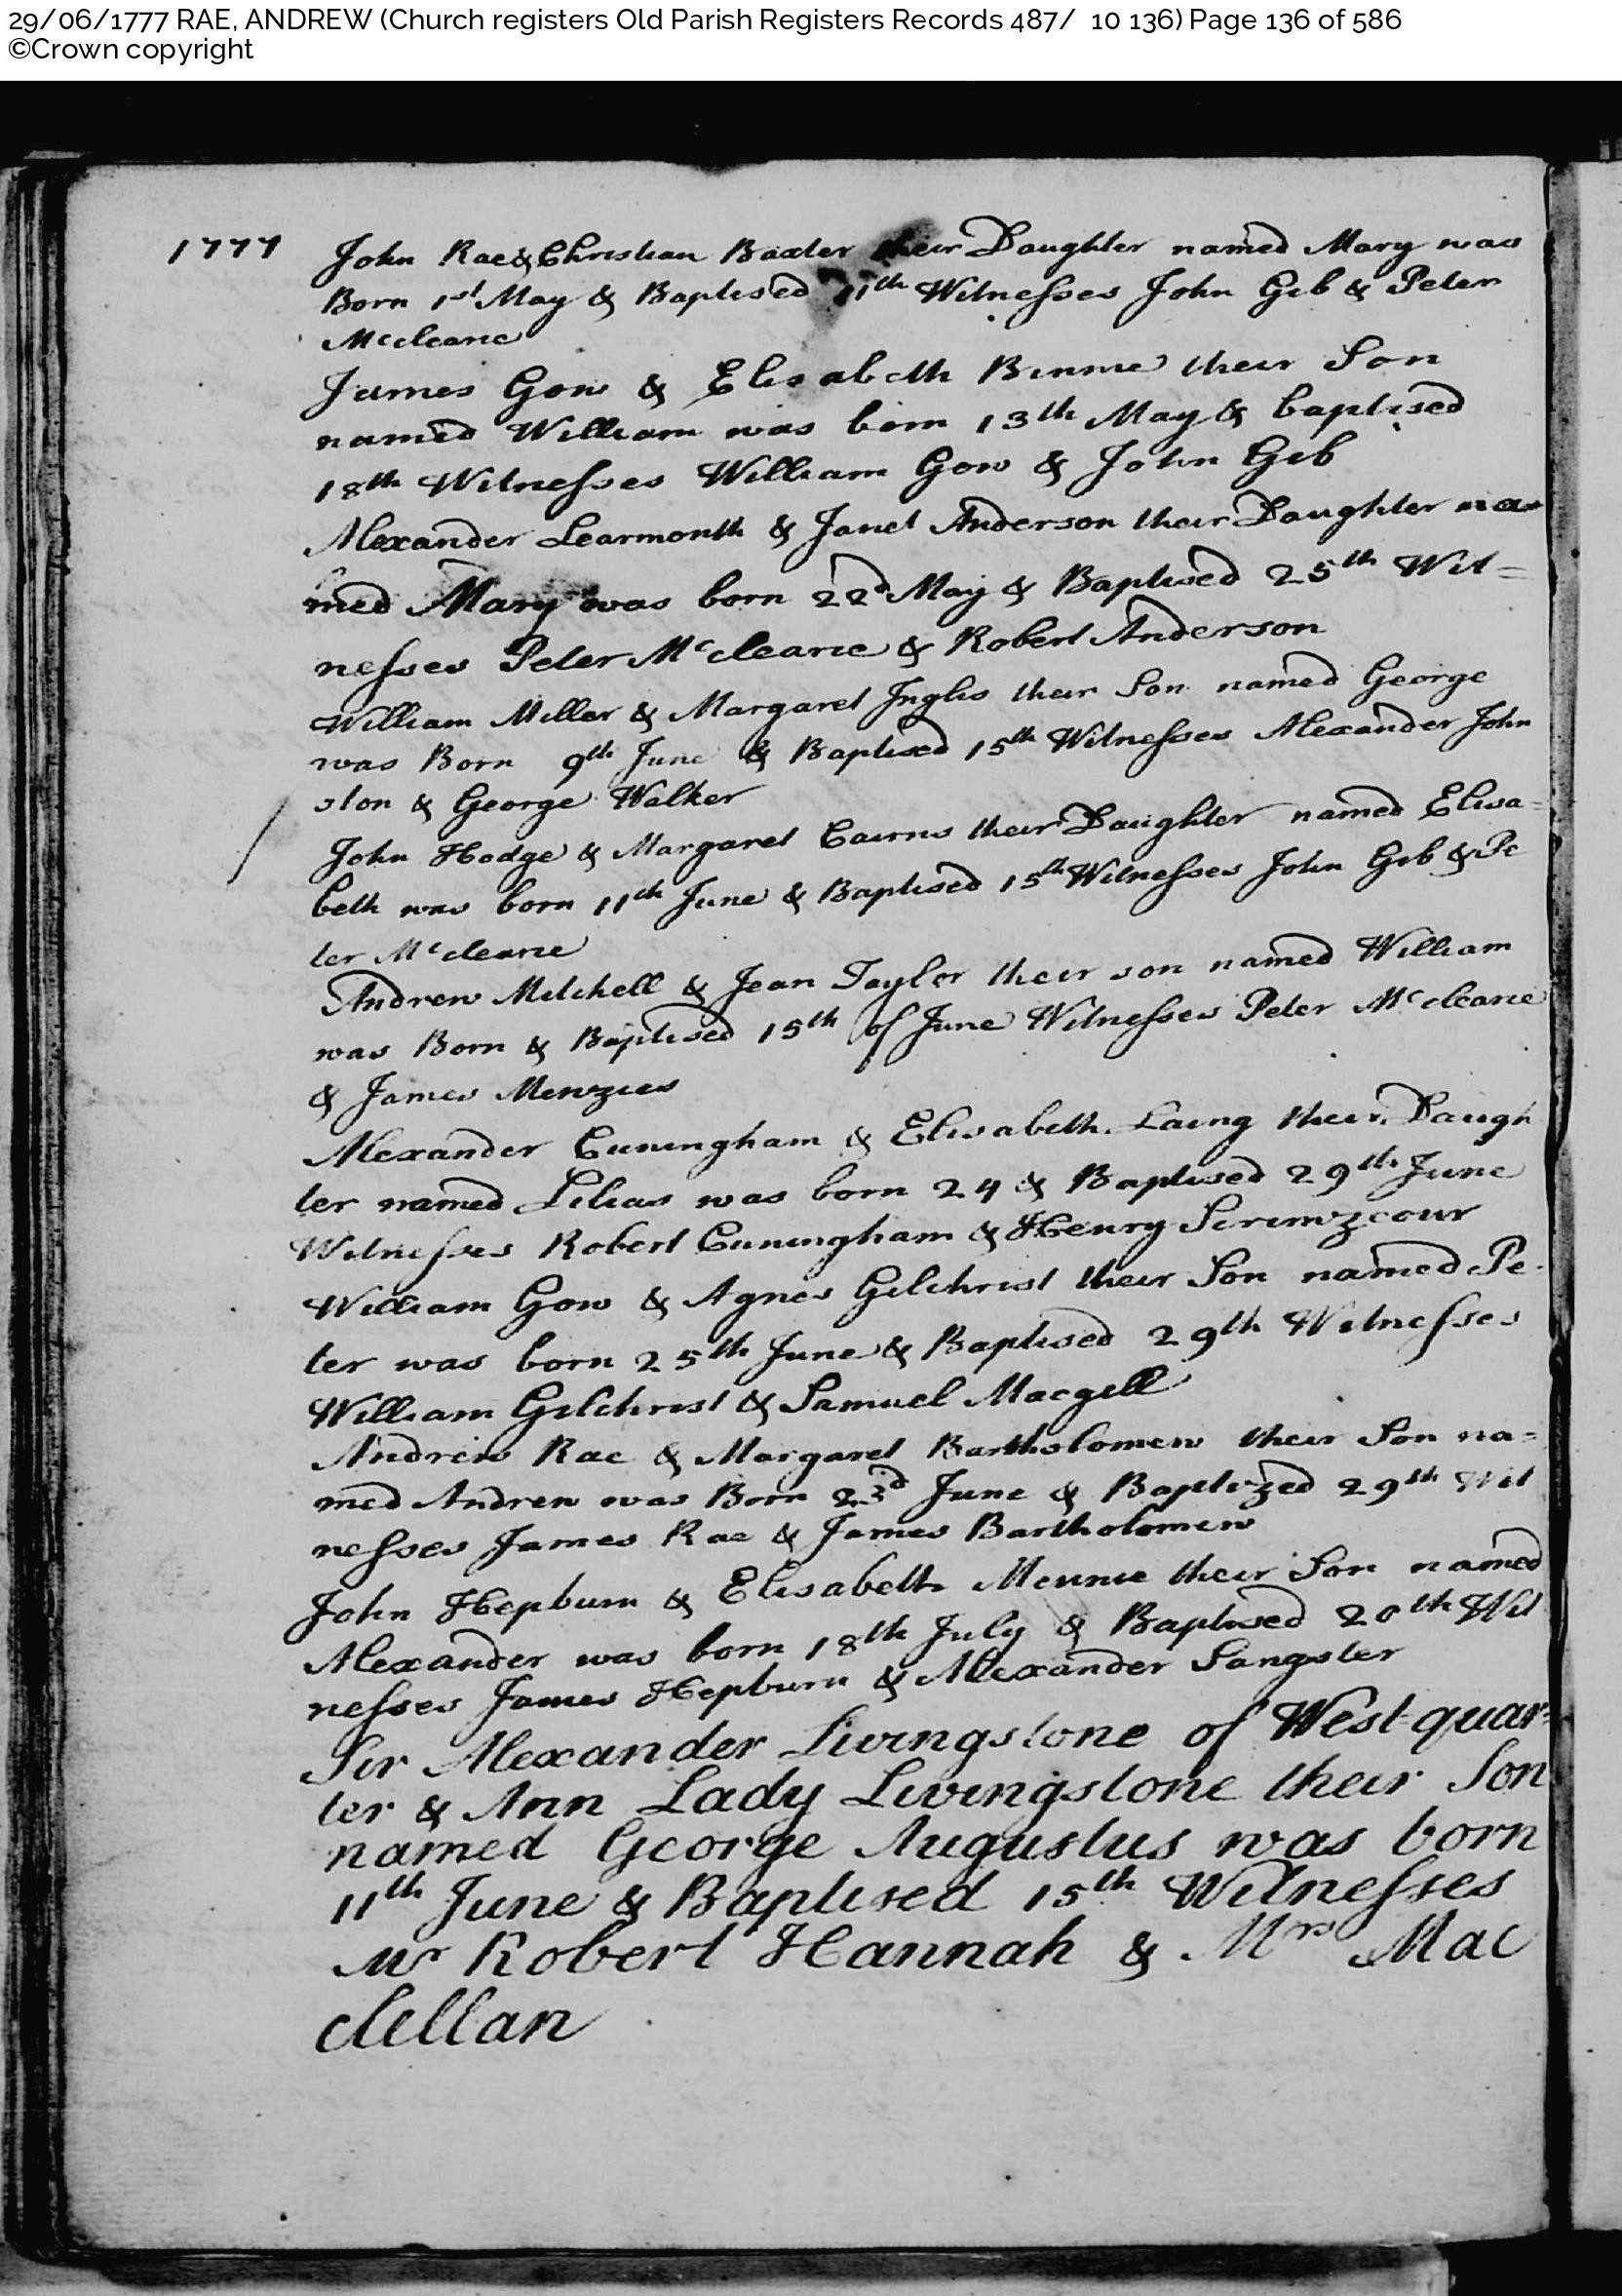 29/06/1777 RAE, ANDREW (Church registers Old Parish Registers Records 487/ 10 136) Page 136 of 586
©Crown copyright
1777 John Rae & Christian Baxter their Daughter named Mary was
Born 1st May & Baptised 11th Witnesses John Gib & Peter
Mcclearie
James Gow & Elisabeth Binnie their Son
named William was born 13th May & baptised
18th Witnesses William Gow & John Gib
Alexander Learmonth & Janet Anderson their Daughter na=
med Mary was born 22d May & Baptised 25th Wit=
nesses Peter Mcclearie & Robert Anderson
William Miller & Margaret Inglis their Son named George
was Born 9th June & Baptised 15th Witnesses Alexander John
ston & George Walker
John Hodge & Margaret Cairns their Daughter named Elisa=
beth was born 11th June & Baptised 15th Witnesses John Gib & Pe
ter Mcclearie
Andrew Mitchell & Jean Taylor their son named William
was Born & Baptised 15th of June Witnesses Peter Mcclearie
& James Menzies
Alexander Cuningham & Elisabeth Laing their Daugh
ter named Lilias was born 24 & Baptised 29th June
Witnesses Robert Cuningham & Henry Scrimzeour
William Gow & Agnes Gilchrist their Son named Pe-
ter was born 25th June & Baptised 29th Witnesses
William Gilchrist & Samuel Macgill
Andrew Rae & Margaret Bartholomew their Son na=
med Andrew was Born 23d June & Baptized 29th Wit
nesses James Rae & James Bartholomew
John Hepburn & Elisabeth Mennie their Son named
Alexander was born 18th July & Baptised 20th Wit
nesses James Hepburn & Alexander Sangster
Sir Alexander Livingstone of West-quar=
ter & Ann Lady Livingstone their Son
named George Augustus was born
11th June & Baptised 15th Witnesses
Mr Robert Hannah & Mrs Mac
clellan